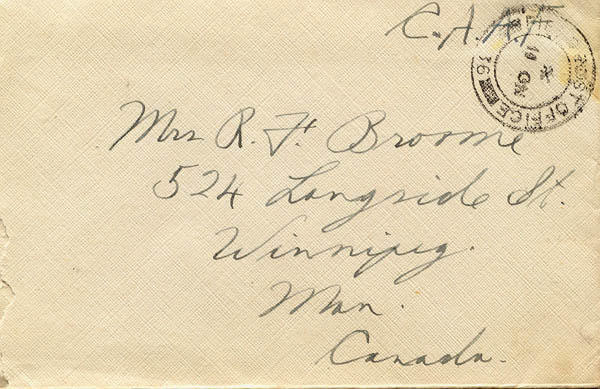 C.A.
POST OFFICE
Mrs R. F. Broome
524 Langside St.
Winnipeg.
Man.
Canada.